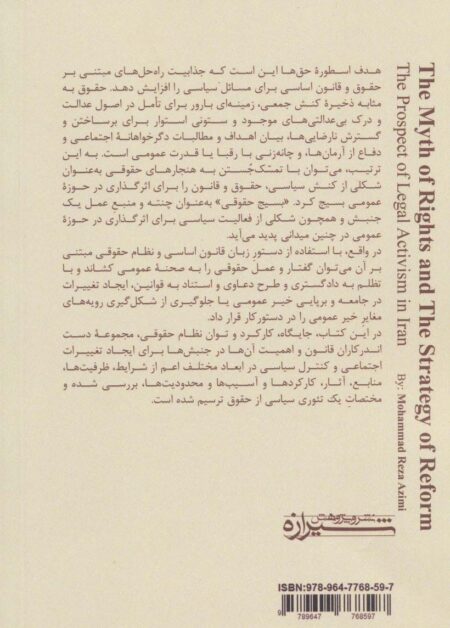 هدف اسطورهٔ حق‌ها این است که جذابیت راه‌حل‌های مبتنی بر
حقوق و قانون اساسی برای مسائل سیاسی را افزایش دهد. حقوق به
مثابه ذخیرهٔ کنش جمعی، زمینه‌ای بارور برای تأمل در اصول عدالت
و درک بی‌عدالتی‌های موجود و ستونی استوار برای برساختن و
گسترش نارضایی‌ها، بیان اهداف و مطالبات دگرخواهانهٔ اجتماعی و
دفاع از آرمان‌ها، و چانه‌زنی با رقبا یا قدرت عمومی است. به این
ترتیب، می‌توان با تمسّک‌جُستن به هنجارهای حقوقی به‌عنوان
شکلی از کنش سیاسی، حقوق و قانون را برای اثرگذاری در حوزهٔ
عمومی بسیج کرد. «بسیج حقوقی» به‌عنوان چنته و منبع عمل یک
جنبش و همچون شکلی از فعالیت سیاسی برای اثرگذاری در حوزهٔ
عمومی در چنین میدانی پدید می‌آید.
در واقع، با استفاده از دستور زبان قانون اساسی و نظام حقوقی مبتنی
بر آن می‌توان گفتار و عمل حقوقی را به صحنهٔ عمومی کشاند و با
تظلم به دادگستری و طرح دعاوی و استناد به قوانین، ایجاد تغییرات
در جامعه و برپایی خیر عمومی یا جلوگیری از شکل‌گیری رویه‌های
مغایر خیر عمومی را در دستورکار قرار داد.
در این کتاب، جایگاه، کارکرد و توان نظام حقوقی، مجموعهٔ دست
اندرکاران قانون و اهمیت آن‌ها در جنبش‌ها برای ایجاد تغییرات
اجتماعی و کنترل سیاسی در ابعاد مختلف اعم از شرایط، ظرفیت‌ها،
منابع، آثار، کارکردها و آسیب‌ها و محدودیت‌ها، بررسی شده و
مختصات یک تئوری سیاسی از حقوق ترسیم شده است.
The Myth of Rights and The Strategy of Reform
The Prospect of Legal Activism in Iran
By: Mohammad Reza Azimi
نشر و پژوهش
شیرازه
ISBN:978-964-7768-59-7
9 789647 768597